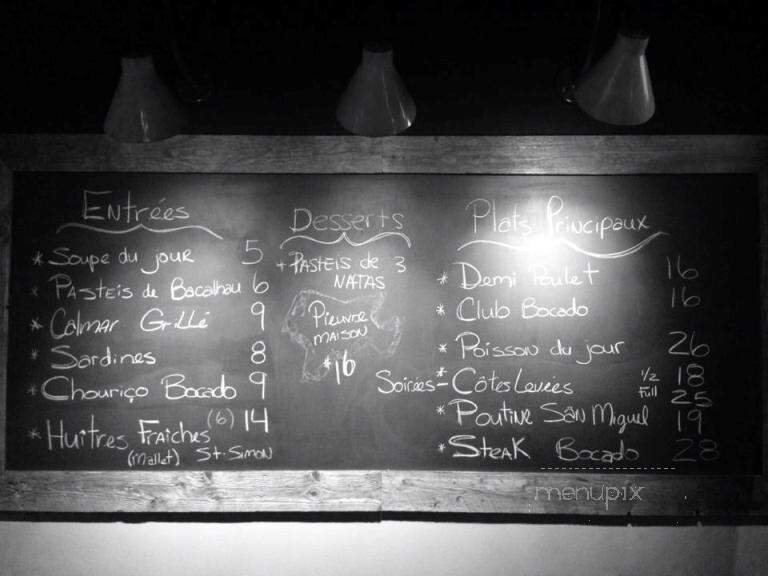 Entrées
* Soupe du jour 5
* Pasteis de Bacalhau 6
* Calmar Grillé 9
* Sardines 8
* Chouriço Bocado 9
* Huîtres Fraîches (6) 14
(Mallet) St-Simon
Desserts
+ Pasteis de 3
Natas
Pieuvre
maison
*16
Plats Principaux
* Demi Poulet 16
* Club Bocado 16
* Poisson du jour 26
Soirées - * Côtes Levées 1/2 18
Full 25
* Poutine Sãn Miguel 19
* Steak Bocado 28
menupix